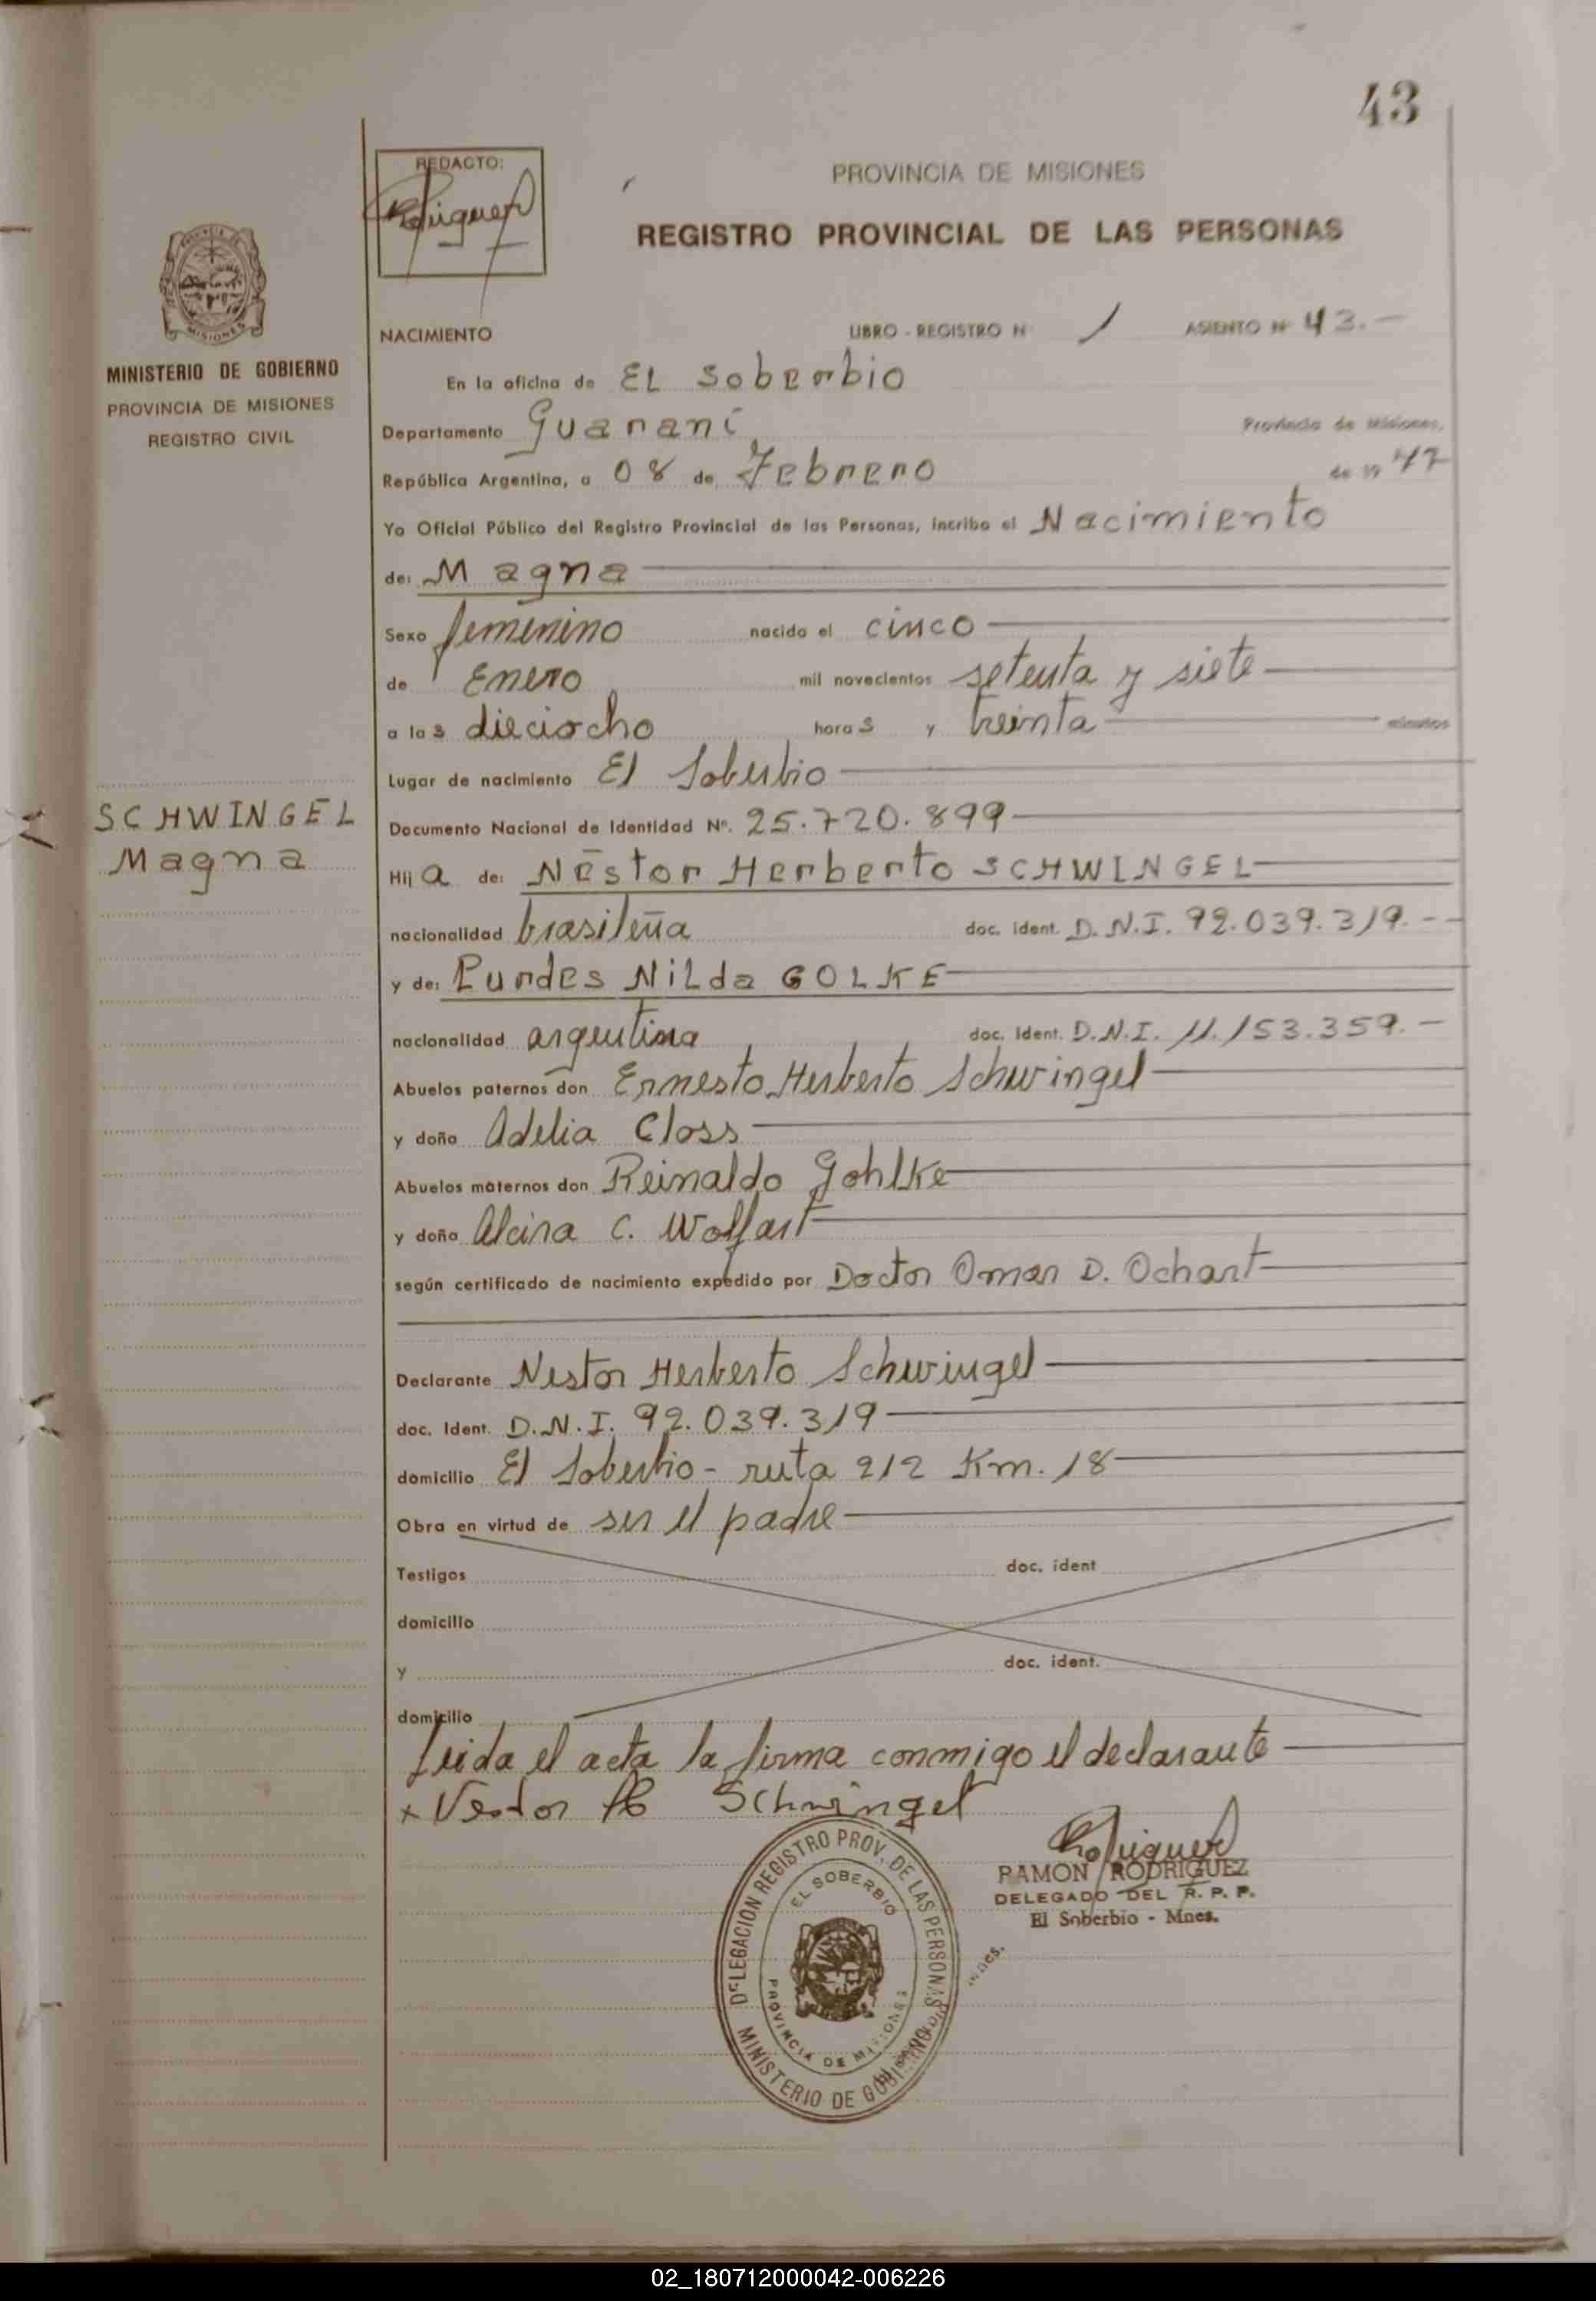 43
REDACTO:
PROVINCIA DE MISIONES
REGISTRO PROVINCIAL DE LAS PERSONAS
MISIONES
MINISTERIO DE GOBIERNO
PROVINCIA DE MISIONES
REGISTRO CIVIL
NACIMIENTO LIBRO - REGISTRO N 1 ASIENTO Nº 43.-
En la oficina de EL Soberbio
Departamento Guaraní Provincia de Misiones,
República Argentina, a 08 de Febrero de 19 77
Yo Oficial Público del Registro Provincial de las Personas, incribo el Nacimiento
de: Magna
Sexo femenino nacido el cinco
de Enero mil novecientos setenta y siete
a las dieciocho horas y treinta minutos
Lugar de nacimiento El Soberbio
SCHWINGEL
Magna
Documento Nacional de Identidad Nº. 25.720.899
Hija de: Néstor Herberto SCHWINGEL
nacionalidad brasileña doc. ident. D.N.I. 92.039.319.--
y de: Lurdes Nilda GOLKE
nacionalidad argentina doc. ident. D.N.I. 11.153.359.-
Abuelos paternos don Ernesto Herberto Schwingel
y doña Adelia Closs
Abuelos maternos don Reinaldo Gohlke
y doña Alcira C. Wolfart
según certificado de nacimiento expedido por Doctor Omar D. Ochart
Declarante Nestor Herberto Schwingel
doc. Ident. D.N.I. 92.039.319
domicilio El Soberbio - ruta 212 Km. 18
Obra en virtud de ser el padre
Testigos doc. ident
domicilio
y doc. ident.
domicilio
Leida el acta la firma conmigo el declarante
x Nestor H Schwingel
RAMON RODRIGUEZ
DELEGADO DEL R. P. P.
El Soberbio - Mnes.
DELEGACION REGISTRO PROV. DE LAS PERSONAS
MINISTERIO DE GOBIERNO
EL SOBERBIO
PROVINCIA DE MISIONES
02_180712000042-006226